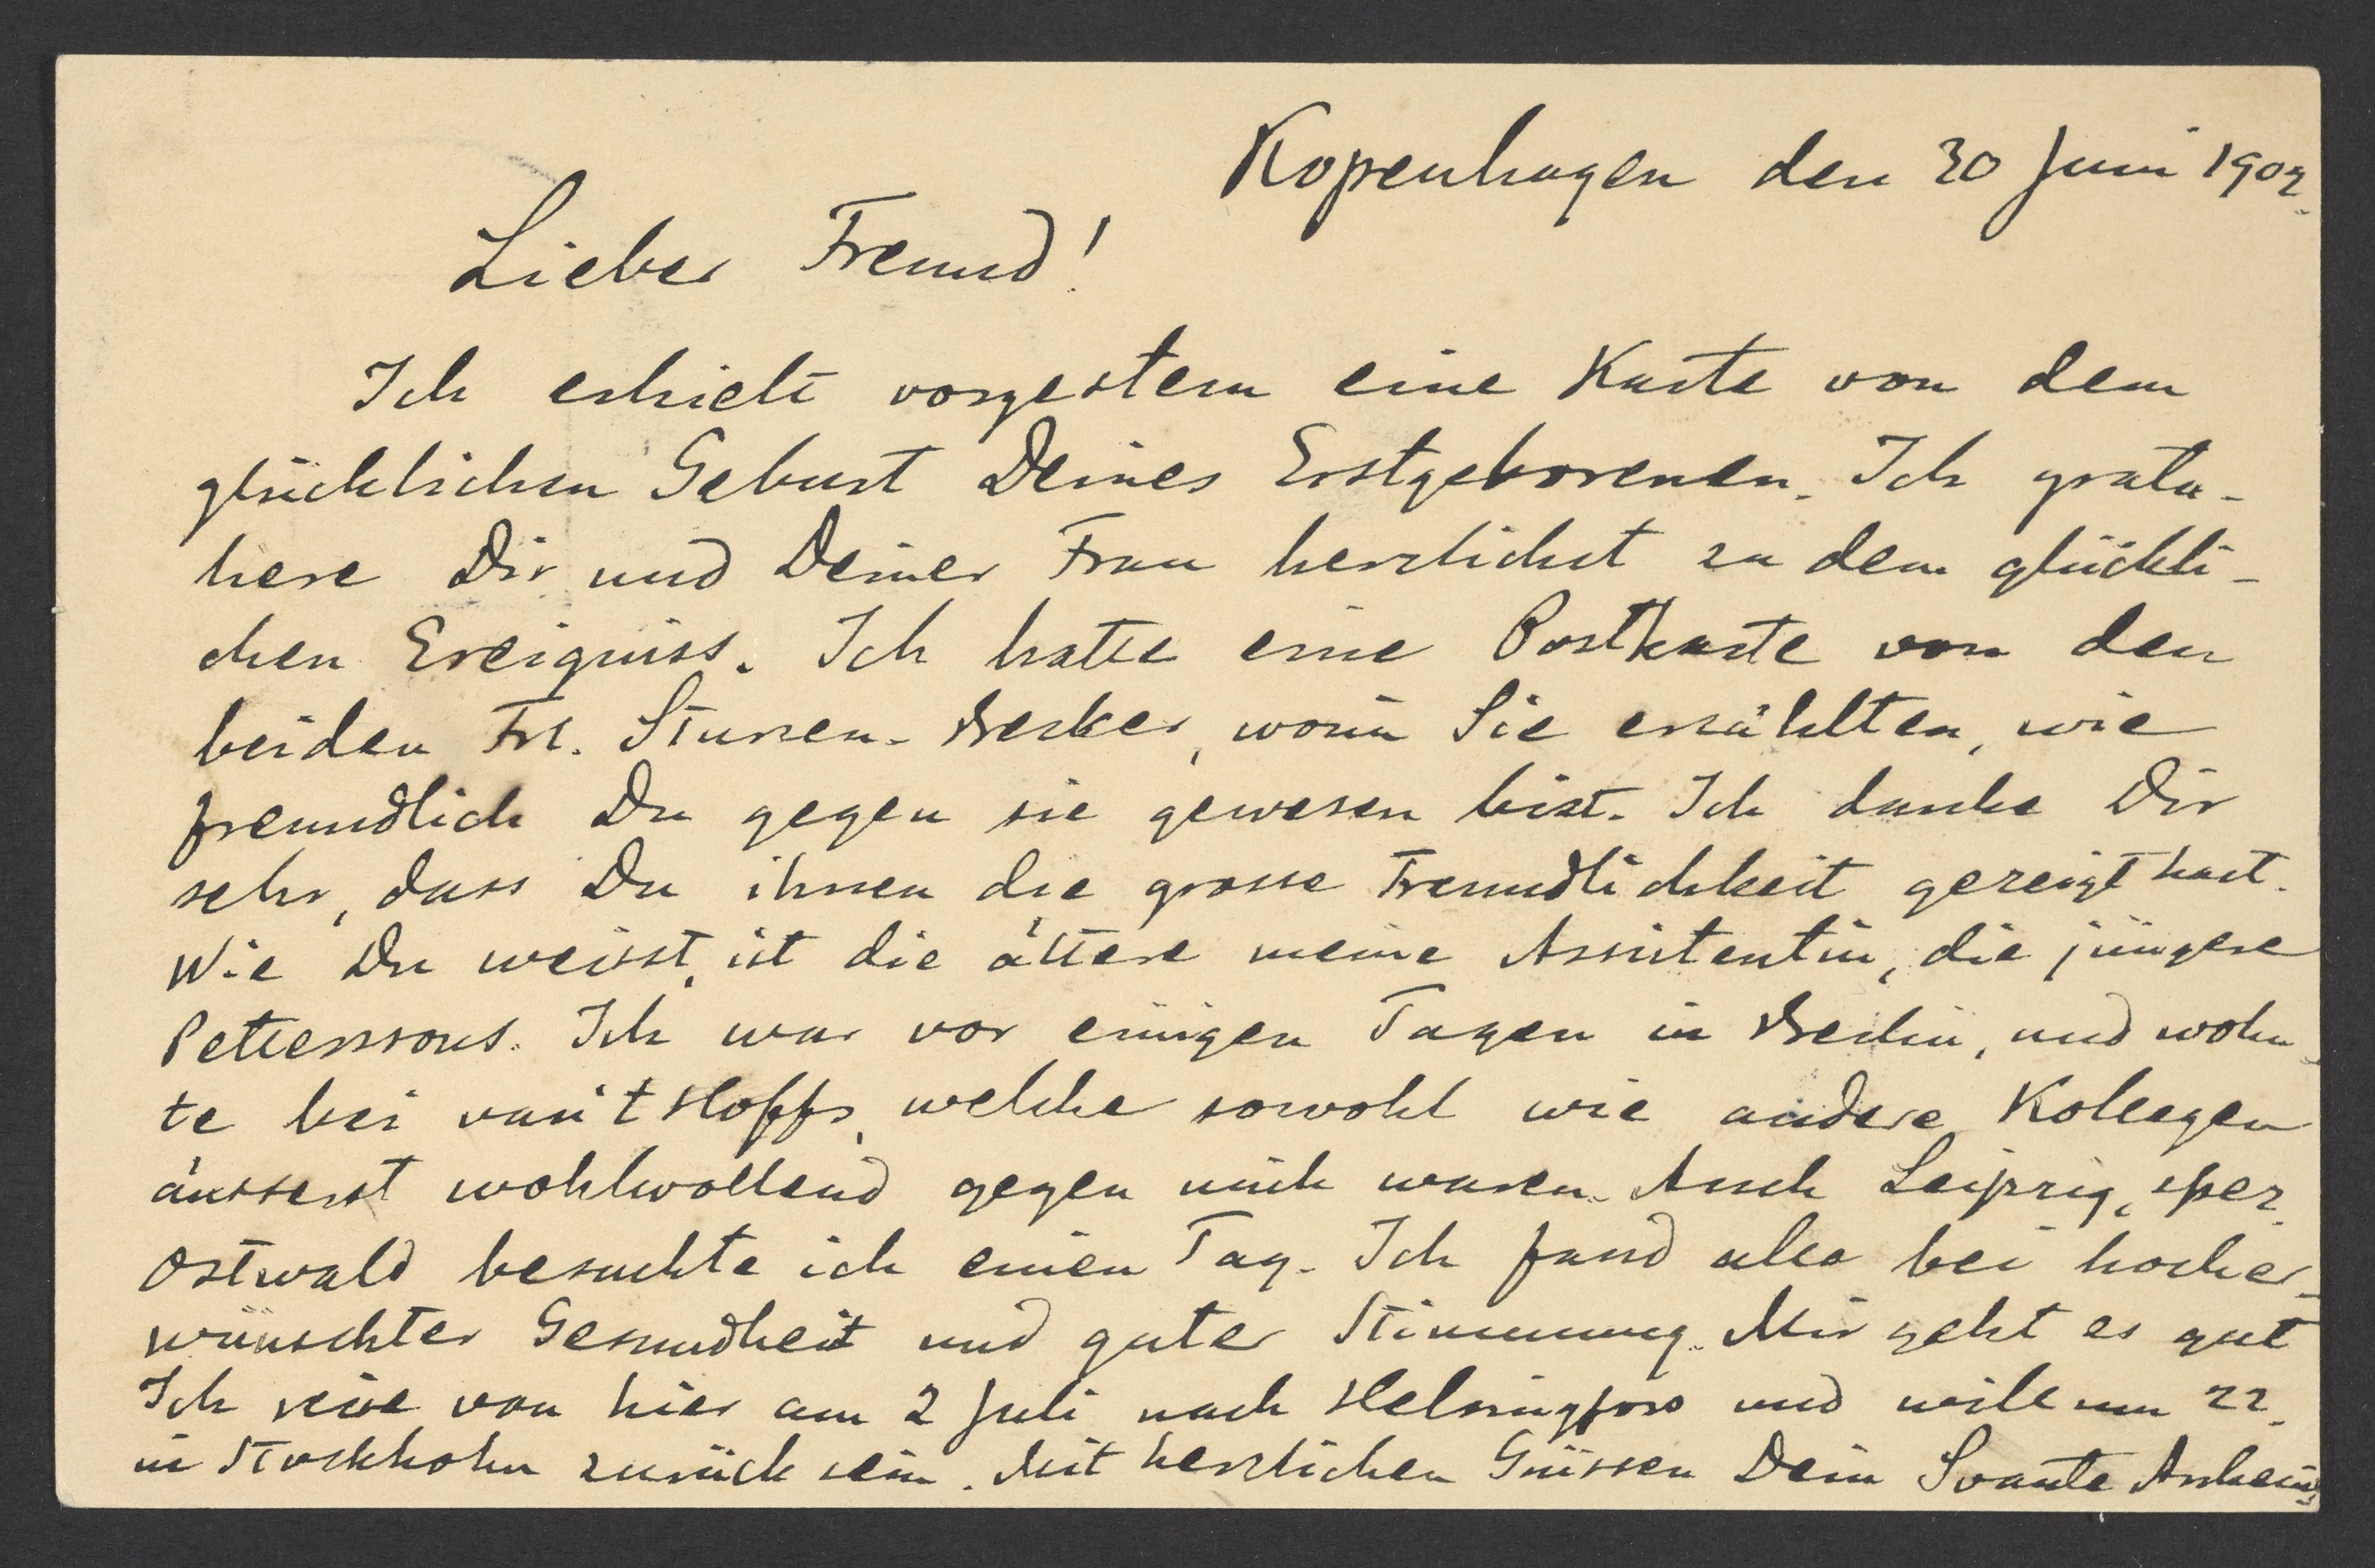 Kopenhagen den 30 Juni 1902.
Lieber Freund!
Ich erhielt vorgestern eine Karte von dem
glücklichen Geburt Deines Erstgeborenen. Ich gratu-
liere Dir und Deiner Frau herzlichst zu dem glückli-
chen Ereigniss. Ich hatte eine Postkarte von den
beiden Frl. Stussen-Becker, worin Sie erzählten, wie
freundlich Du gegen sie gewesen bist. Ich danke Dir
sehr, dass Du ihnen die grosse Freundlichkeit gezeigt hast.
Wie Du weisst, ist die ältere meine Assistentin, die jüngere
Petterssons. Ich war vor einigen Tagen in Berlin, und wohn-
te bei van't Hoffs, welche sowohl wie andere Kollegen
äusserst wohlwollend gegen mich waren. Auch Leipzig, spez.
Ostwald besuchte ich einen Tag. Ich fand alles bei hocher-
wünschter Gesundheit und guter Stimmung. Mir geht es gut
Ich reise von hier am 2 Juli nach Helsingfors und will um 22.
in Stockholm zurück sein. Mit herzlichen Grüssen Dein Svante Arrhenius